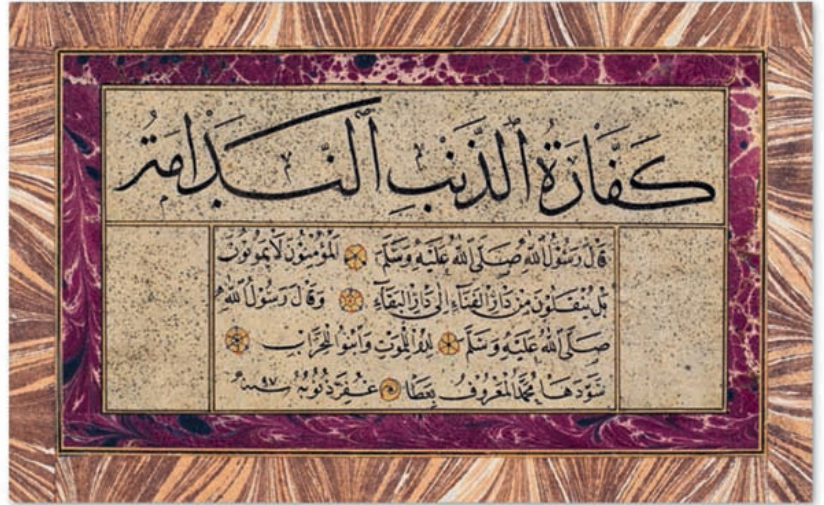 كَفَّارَةُ الذَّنْبِ النَّدَامَةُ
قَالَ رَسُولُ اللهِ صَلَّى اللهُ عَلَيْهِ وَسَلَّمَ الْمُؤْمِنُونَ لَا يَمُوتُونَ
بَلْ يُنْقَلُونَ مِنْ دَارِ الْفَنَاءِ إِلَى دَارِ الْبَقَاءِ وَقَالَ رَسُولُ اللهِ
صَلَّى اللهُ عَلَيْهِ وَسَلَّمَ لِدُوا لِلْمَوْتِ وَابْنُوا لِلْخَرَابِ
سَوَّدَهَا مُحَمَّدُ الْمَعْرُوفُ بِعَطَا غُفِرَ ذُنُوبُهُ سنة